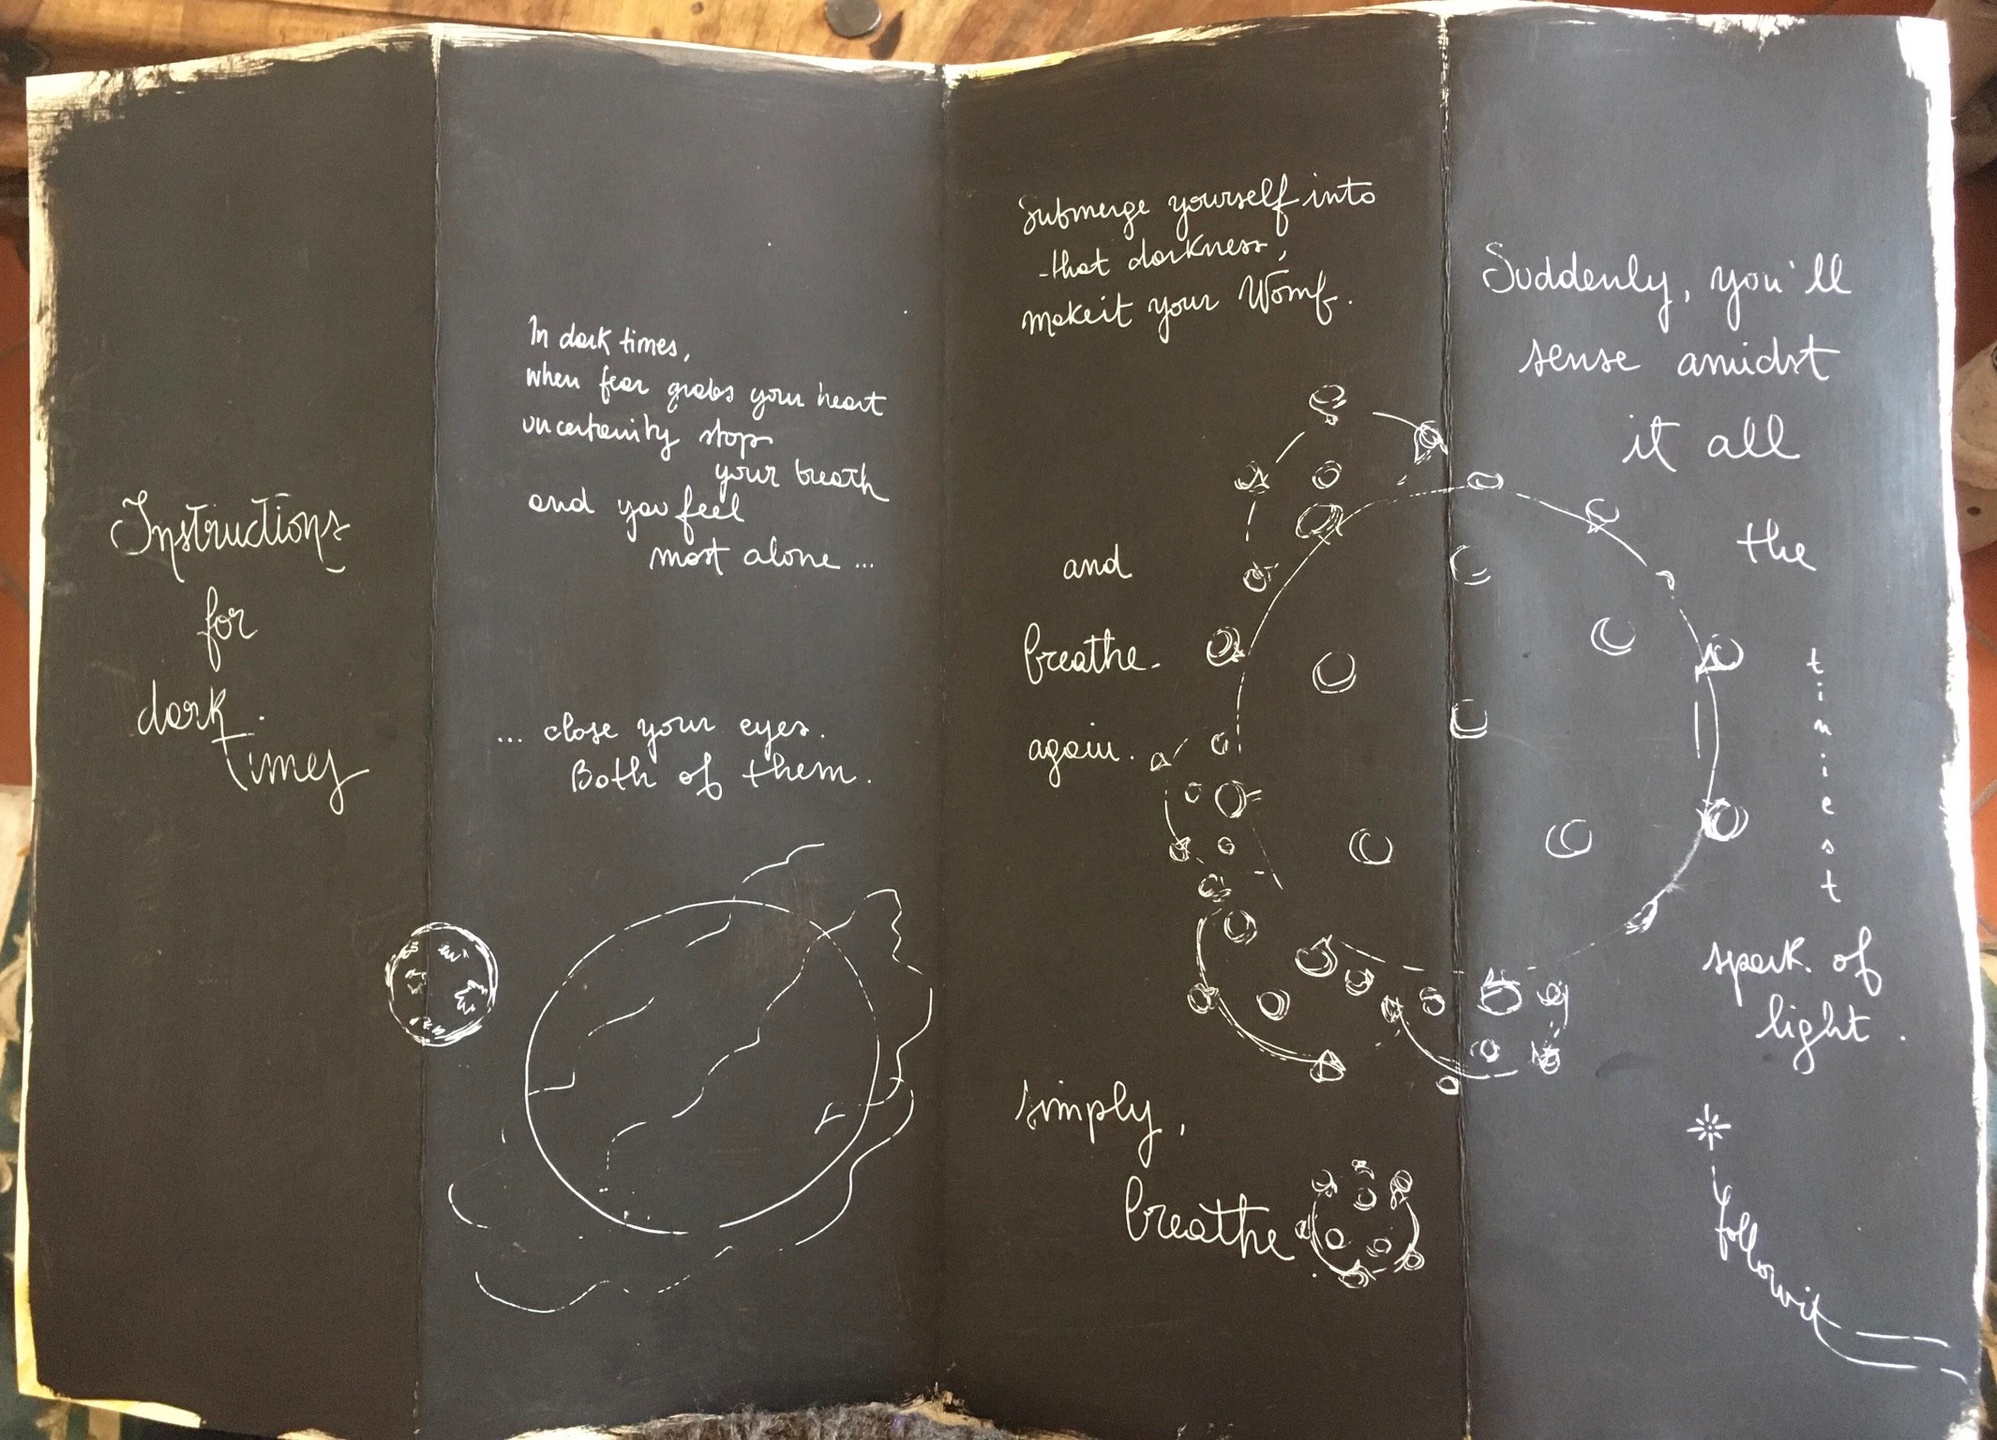 Instructions
for
dark
times
In dark times,
when fear grabs your heart
uncertainity stops
your breath
and you feel
most alone ...
... close your eyes.
Both of them.
Submerge yourself into
that darkness,
make it your Womb.
and
breathe
again.
simply,
breathe
Suddenly, you'll
sense amidst
it all
the
tiniest
spark of
light.
follow it